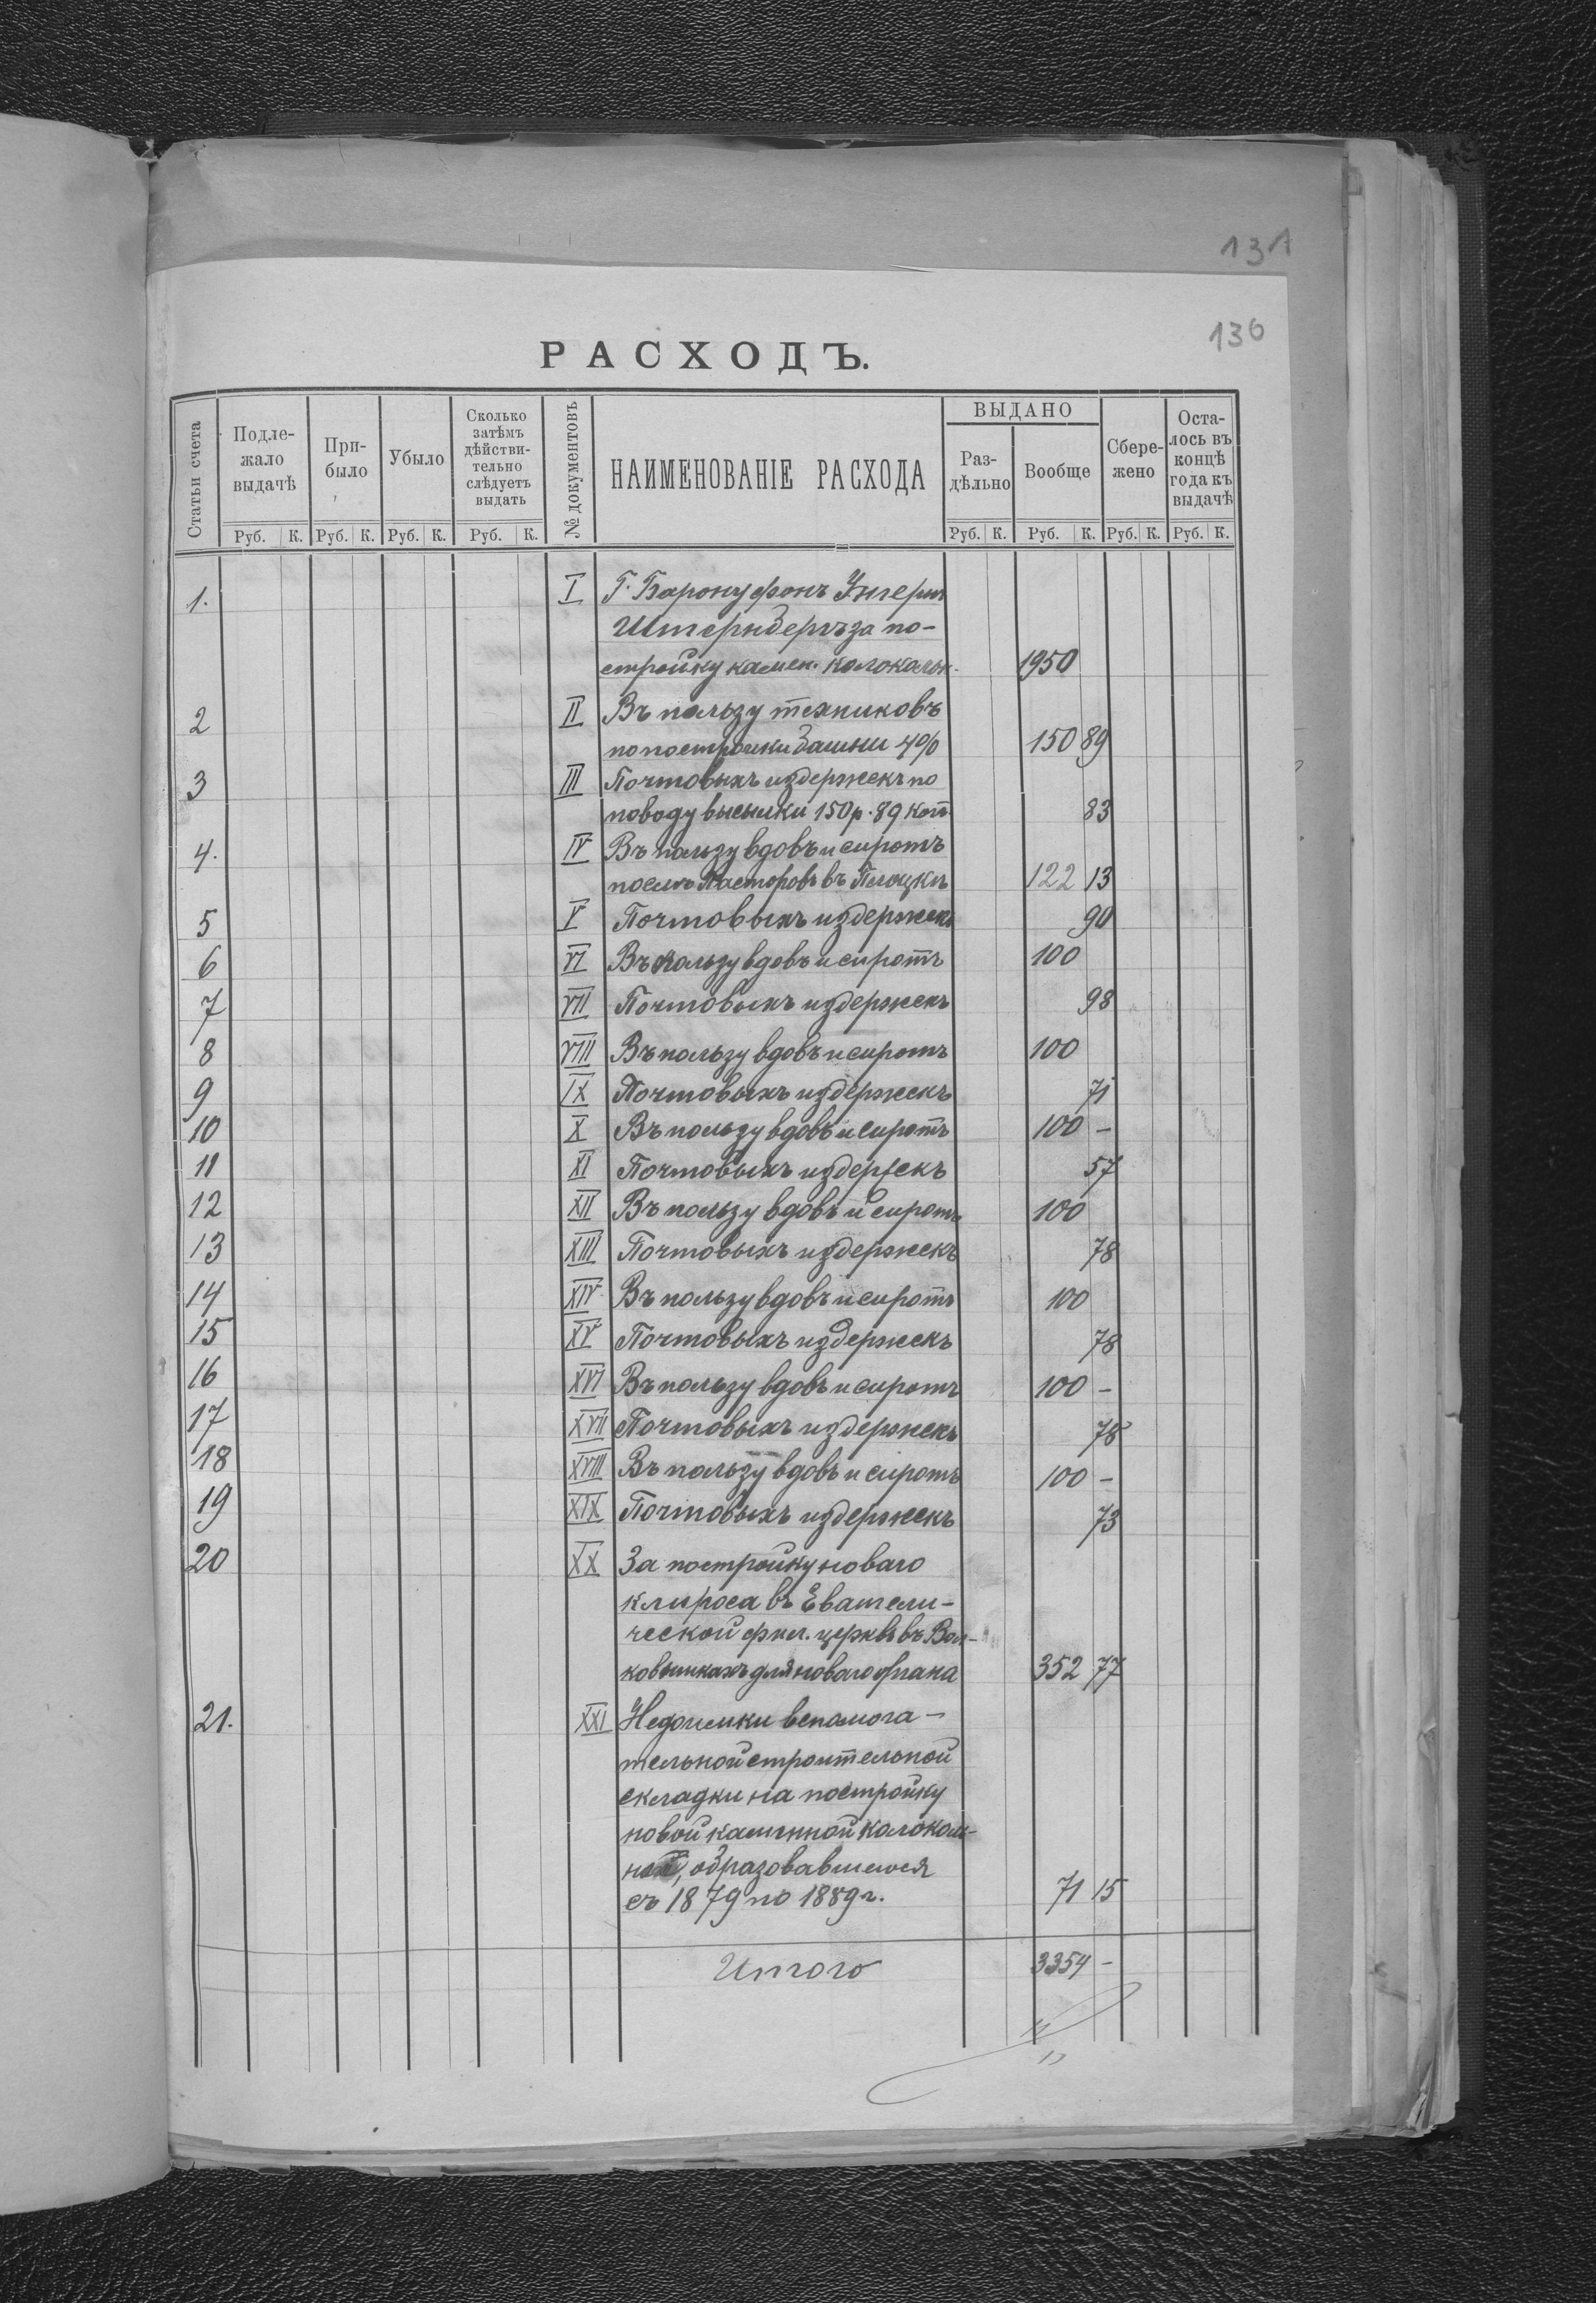 131
136
РАСХОДЪ.
Статьи счета
Подле-
жало
выдачѣ
При-
было
Убыло
Сколько
затѣмъ
дѣйстви-
тельно
слѣдуетъ
выдать
№ документовъ
НАИМЕНОВАНІЕ РАСХОДА
ВЫДАНО
Раз-
дѣльно
Вообще
Сбере-
жено
Оста-
лось въ
концѣ
года къ
выдачѣ
Руб. К. Руб. К. Руб. К. Руб. К. Руб. К. Руб. К. Руб. К. Руб. К.
1. I Г. Барону фонъ Унгернъ
Штернбергъ за по-
стройку камен. колокальн. 1950
2 II Въ пользу техниковъ
по постройки башни 4% 150 89
3 III Почтовыхъ издержекъ по
поводу высылки 150 р. 89 коп. 83
4. IV Въ пользу вдовъ и сиротъ
послѣ Пасторовъ въ Плоцкѣ 122 13
5 V Почтовыхъ издержекъ 90
6 VI Въ пользу вдовъ и сиротъ 100
7 VII Почтовыхъ издержекъ 98
8 VIII Въ пользу вдовъ и сиротъ 100
9 IX Почтовыхъ издержекъ 71
10 X Въ пользу вдовъ и сиротъ 100 –
11 XI Почтовыхъ издержекъ 57
12 XII Въ пользу вдовъ и сиротъ 100
13 XIII Почтовыхъ издержекъ 78
14 XIV Въ пользу вдовъ и сиротъ 100
15 XV Почтовыхъ издержекъ 78
16 XVI Въ пользу вдовъ и сиротъ 100 –
17 XVII Почтовыхъ издержекъ 78
18 XVIII Въ пользу вдовъ и сиротъ 100 –
19 XIX Почтовыхъ издержекъ 73
20 XX За постройку новаго
клироса въ Евангели-
ческой фил. церквѣ въ Вол-
ковышкахъ для новаго органа 352 77
21. XXI Недоимки вспомога-
тельной строительной
складки на постройку
новой каменной колоколь-
образовавшеюся
съ 1879 по 1889 г. 71 15
Итого 3354 –